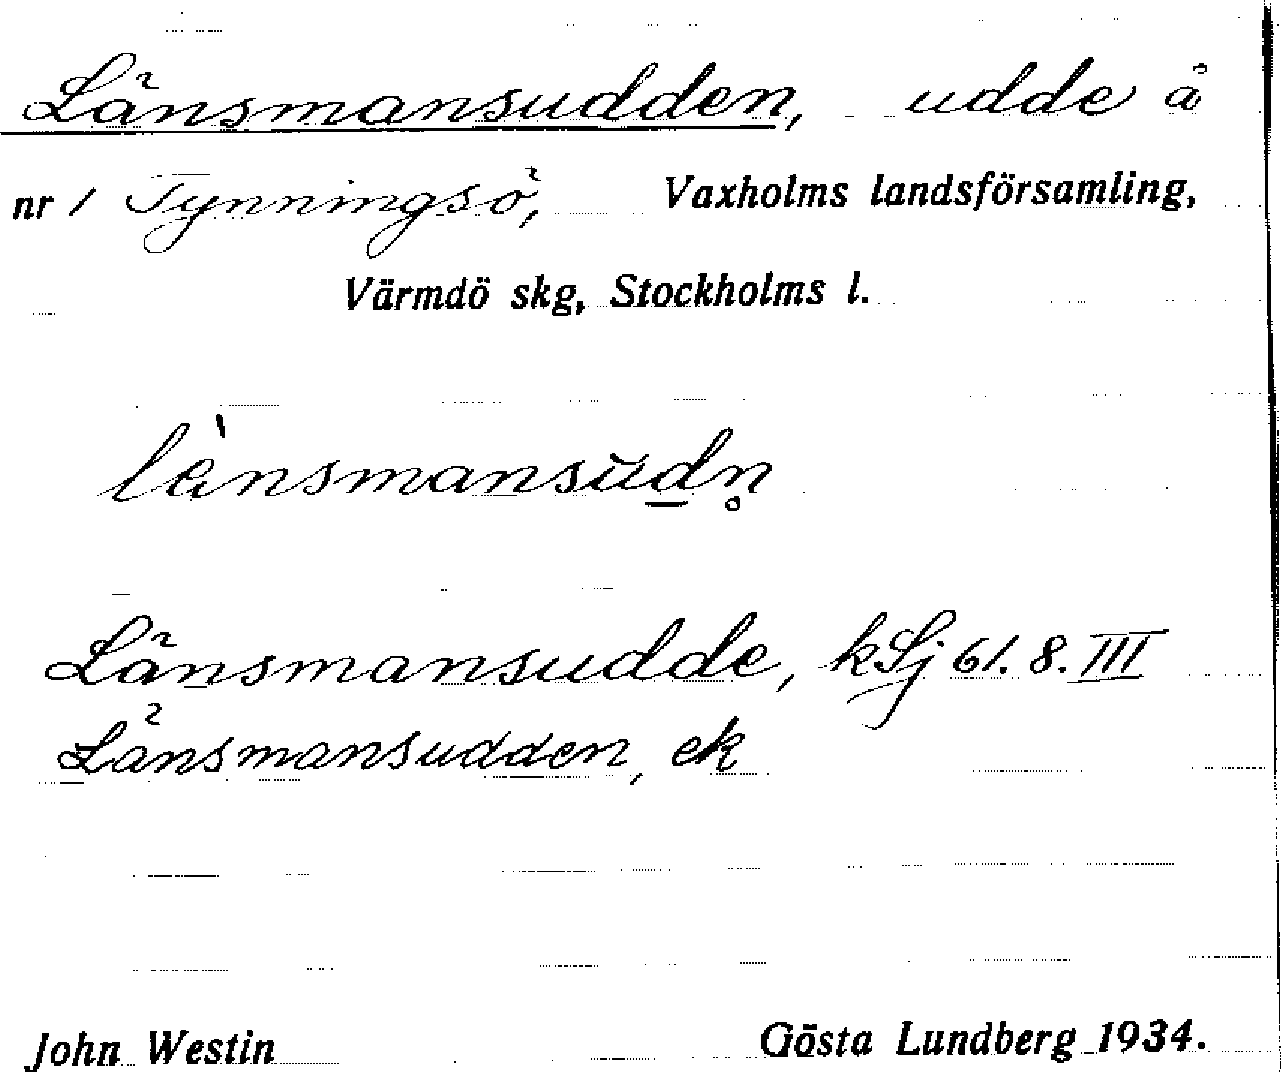 Länsmansudden, udde å
nr 1 Tynningsö, Vaxholms landsförsamling,
Värmdö skg, Stockholms l.
lènsmansŭdn̥
Länsmansudde, kSj 61. 8. III
Länsmansudden, ek
John Westin Gösta Lundberg 1934.